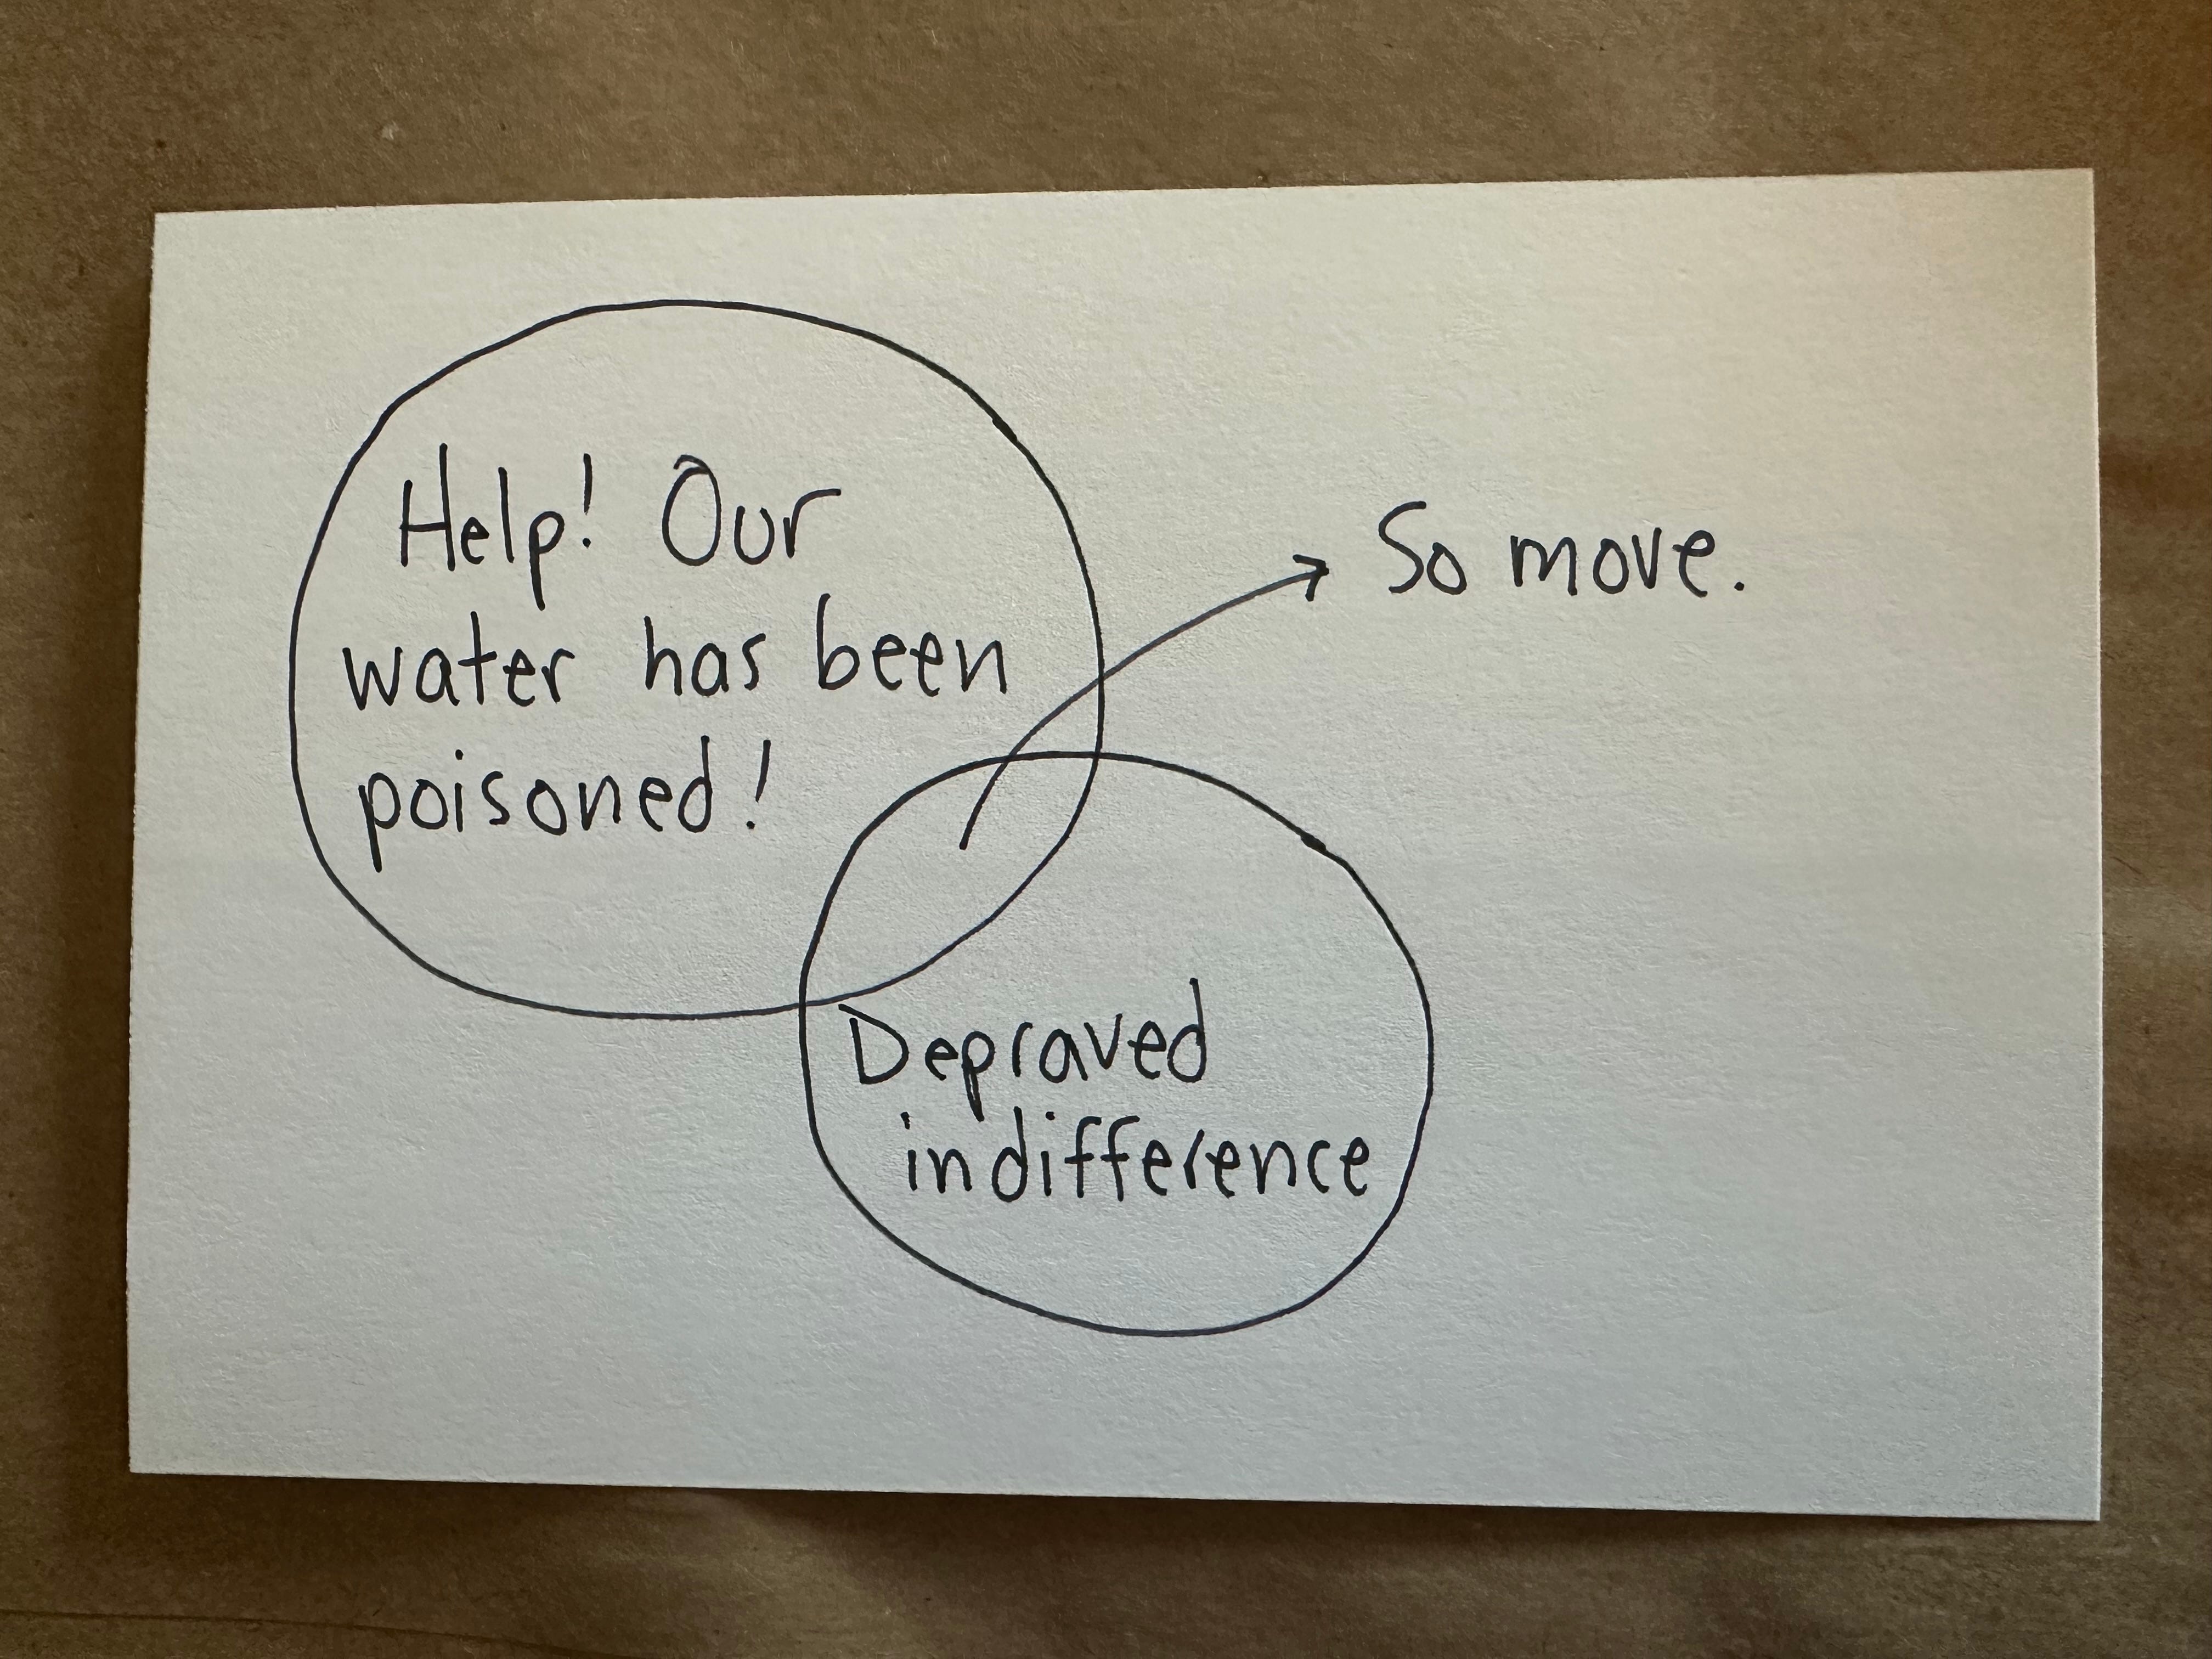 Help! Our
water has been
poisoned!
So move.
Depraved
indifference